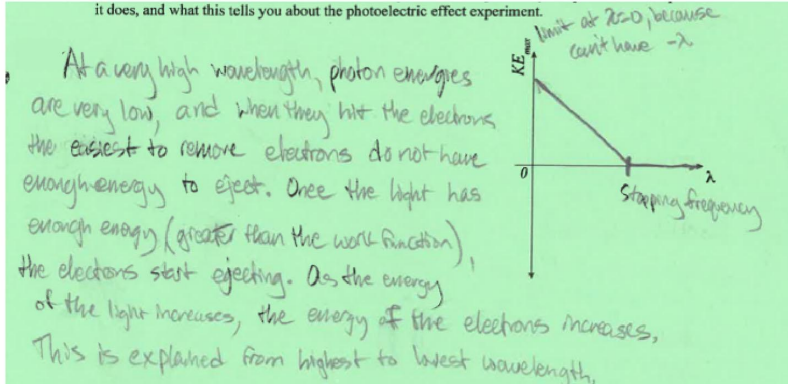 it does, and what this tells you about the photoelectric effect experiment.
limit at λ=0, because
can't have -λ
KE max
At a very high wavelength, photon energies
are very low, and when they hit the electrons
the easiest to remove electrons do not have
enough energy to eject. Once the light has
enough energy (greater than the work function),
the electrons start ejecting. As the energy
of the light increases, the energy of the electrons increases.
This is explained from highest to lowest wavelength.
0
λ
Stopping frequency